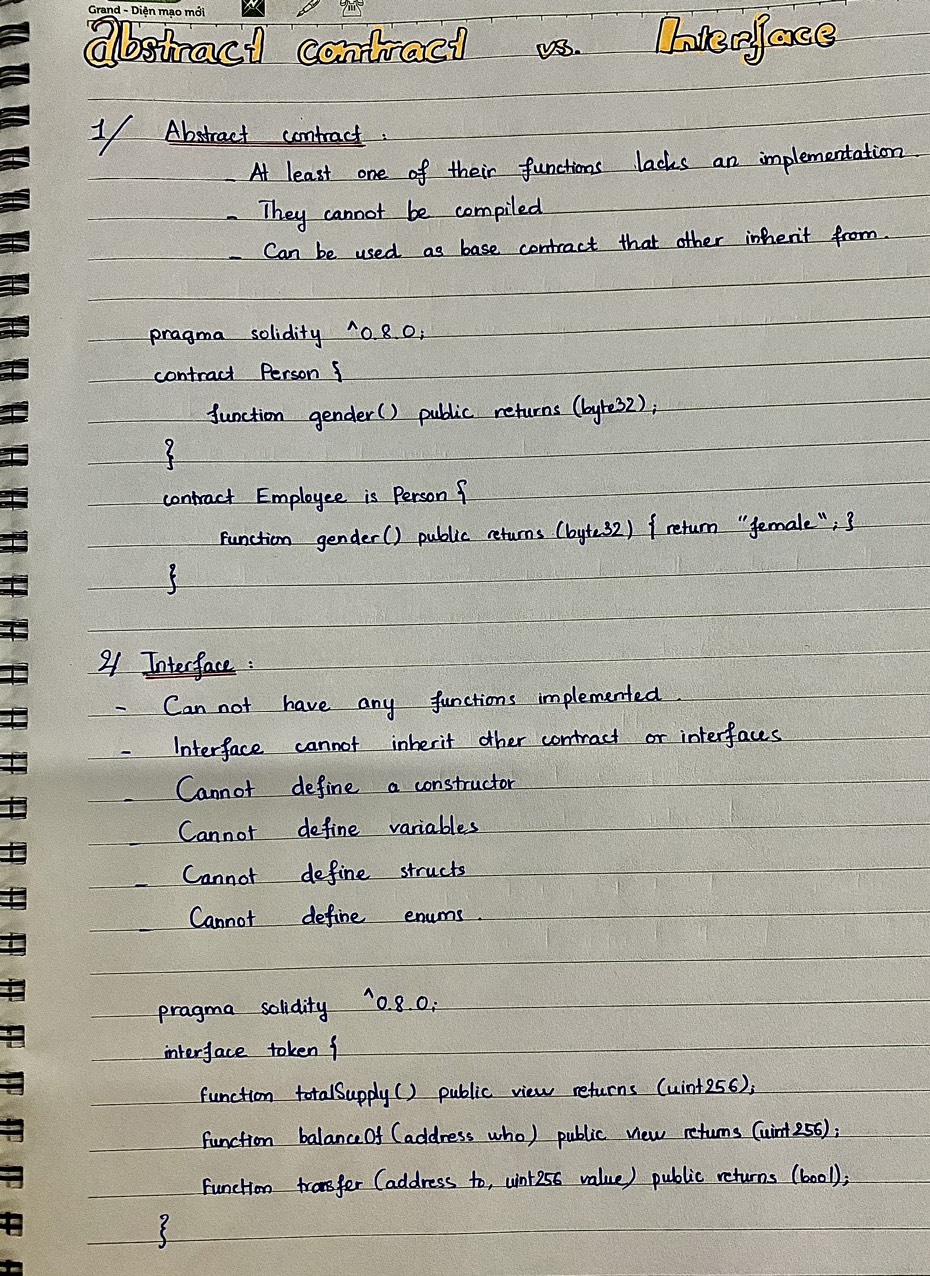 Grand - Diện mạo mới
abstract contract vs. Interface
1/ Abstract contract :
- At least one of their functions lacks an implementation.
- They cannot be compiled
- Can be used as base contract that other inherit from.
pragma solidity ^0.8.0;
contract Person {
function gender() public returns (byte32);
}
contract Employee is Person {
function gender() public returns (byte32) { return "female"; }
}
2/ Interface :
- Can not have any functions implemented.
- Interface cannot inherit other contract or interfaces
- Cannot define a constructor
- Cannot define variables
- Cannot define structs
- Cannot define enums.
pragma solidity ^0.8.0;
interface token {
function totalSupply() public view returns (uint256);
function balanceOf (address who) public view returns (uint256);
function transfer (address to, uint256 value) public returns (bool);
}